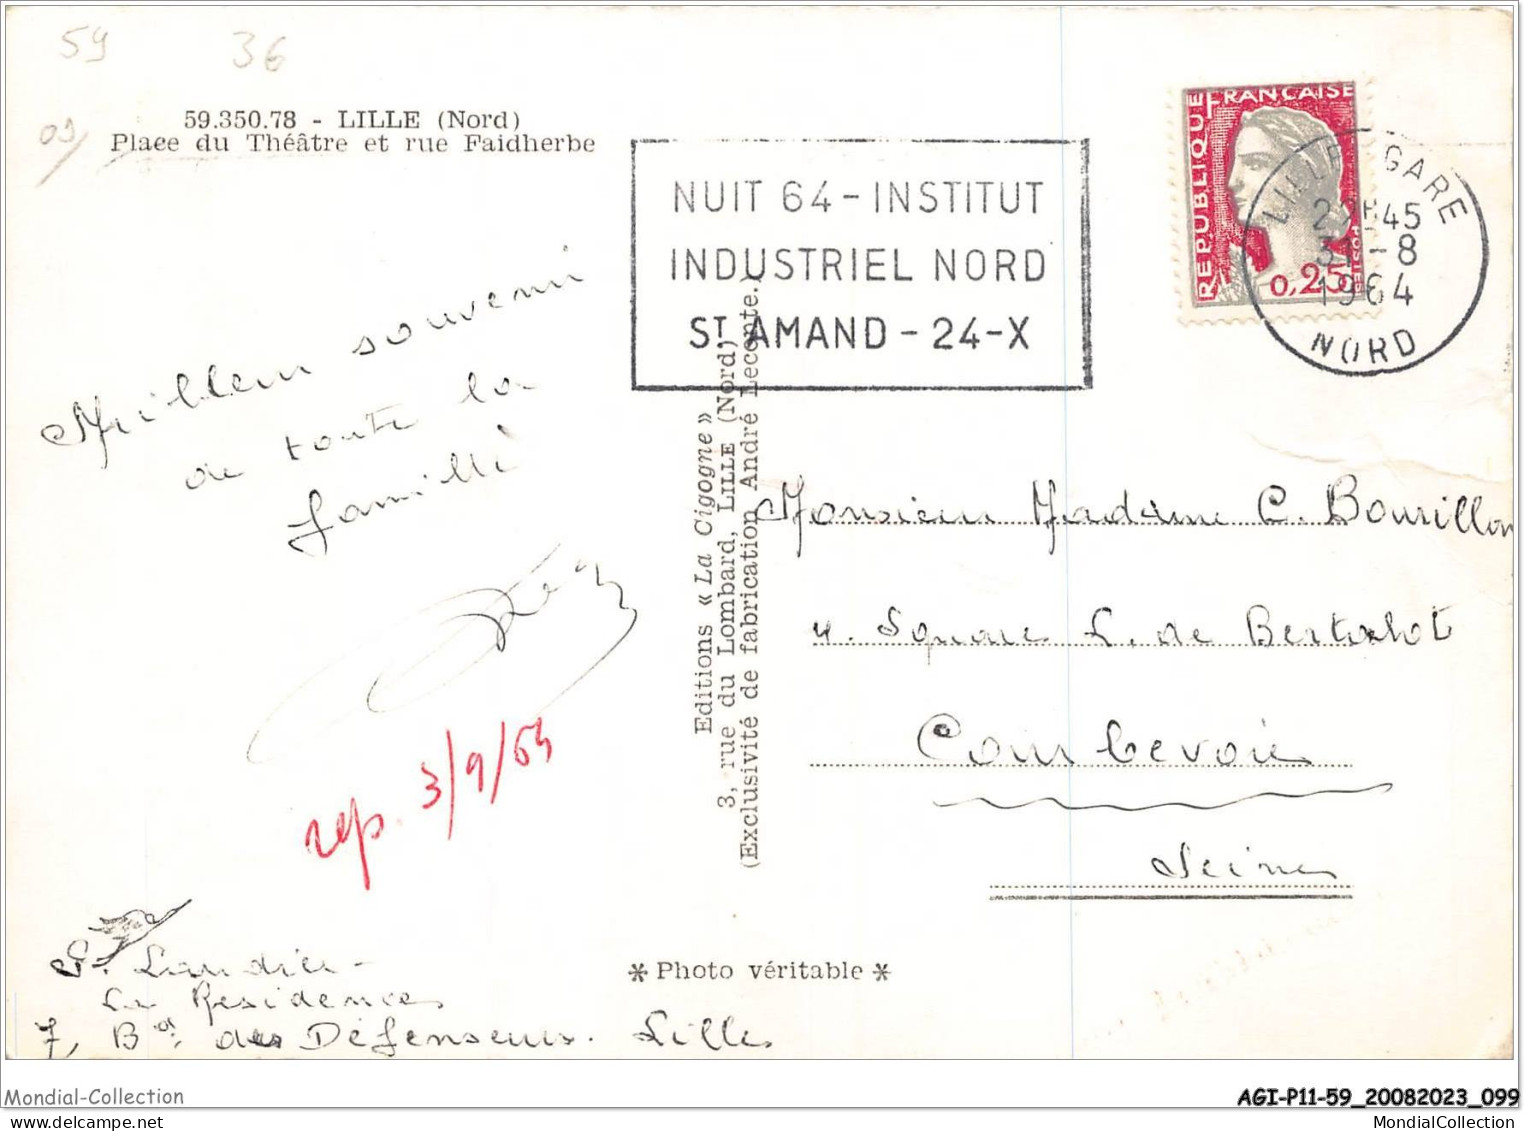 59
36
09/
59.350.78 - LILLE (Nord)
Place du Théâtre et rue Faidherbe
NUIT 64 - INSTITUT
INDUSTRIEL NORD
ST AMAND - 24-X
RÉPUBLIQUE FRANÇAISE
0,25
POSTES
LILLE GARE
45
31-8
1964
NORD
Meilleur souvenir
de toute la
famille
rep. 3/9/64
Editions « La Cigogne »
3, rue du Lombard, LILLE (Nord)
(Exclusivité de fabrication André Leconte.)
Monsieur Madame C. Bourillon
4. Square L. de Bertalot
Courbevoie
Seine
La Résidence
7, Bd des Défenseurs. Lille
* Photo véritable *
Mondial-Collection
AGI-P11-59_20082023_099
www.delcampe.net
MondialCollection